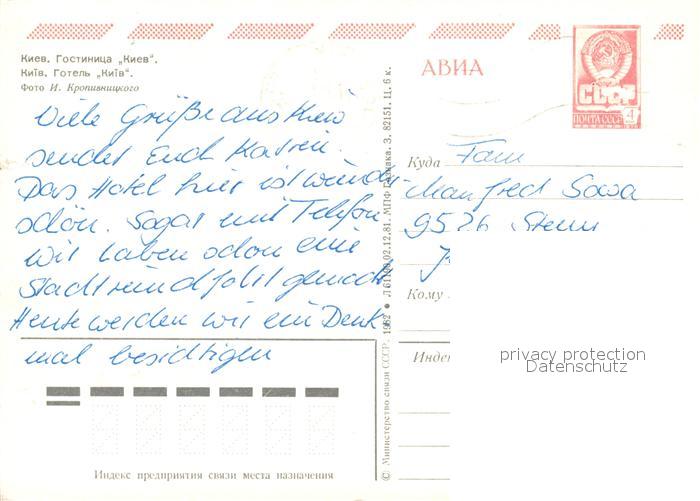 Киев. Гостиница „Киев“.
Київ. Готель „Київ“.
Фото И. Кропивницкого
АВИА
СССР
ПОЧТА СССР
4
Viele Grüße aus Kiew
sendet Euch Katrin.
Das Hotel hier ist wunder-
schön. Sogar mit Telefon
wir haben schon eine
Stadtrundfahrt gemacht
Heute werden wir ein Denk
mal besichtigen
Куда Fam
Manfred Sowa
9526 Stenn
Кому
privacy protection
Datenschutz
Индекс предприятия связи места назначения
© Министерство связи СССР. 1982 02.12.81. МПФ Гознака. З. 82151. Ц. 6 к.